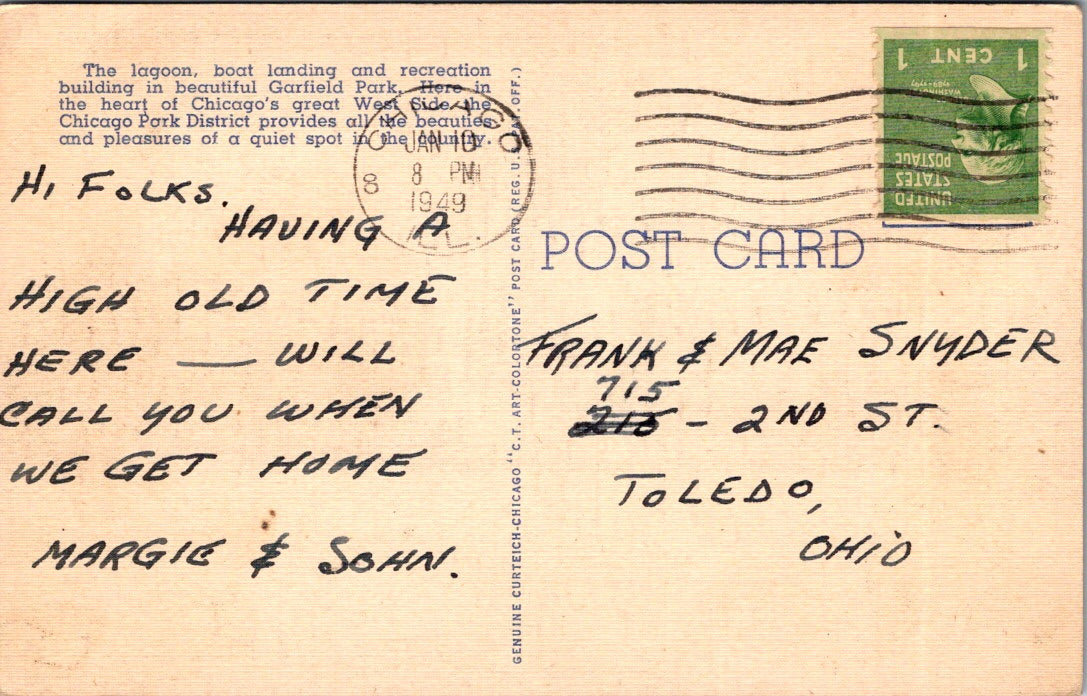 The lagoon, boat landing and recreation
building in beautiful Garfield Park. Here in
the heart of Chicago's great West Side the
Chicago Park District provides all the beauties
and pleasures of a quiet spot in the country.
CHICAGO
JAN 10
8 PM
1949
ILL.
8
1 CENT 1
WASHINGTON
1789-1797
UNITED
STATES
POSTAGE
HI FOLKS.
HAVING A
HIGH OLD TIME
HERE — WILL
CALL YOU WHEN
WE GET HOME
MARGIE & JOHN.
GENUINE CURTEICH-CHICAGO "C.T. ART-COLORTONE" POST CARD (REG. U.S. PAT. OFF.)
POST CARD
FRANK & MAE SNYDER
715
- 2ND ST.
TOLEDO,
OHIO